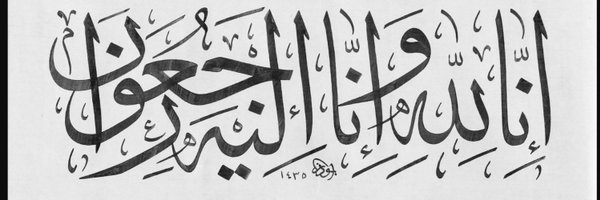 إِنَّا لِلّٰهِ وَإِنَّا إِلَيْهِ رَاجِعُونَ
١٤٣٥